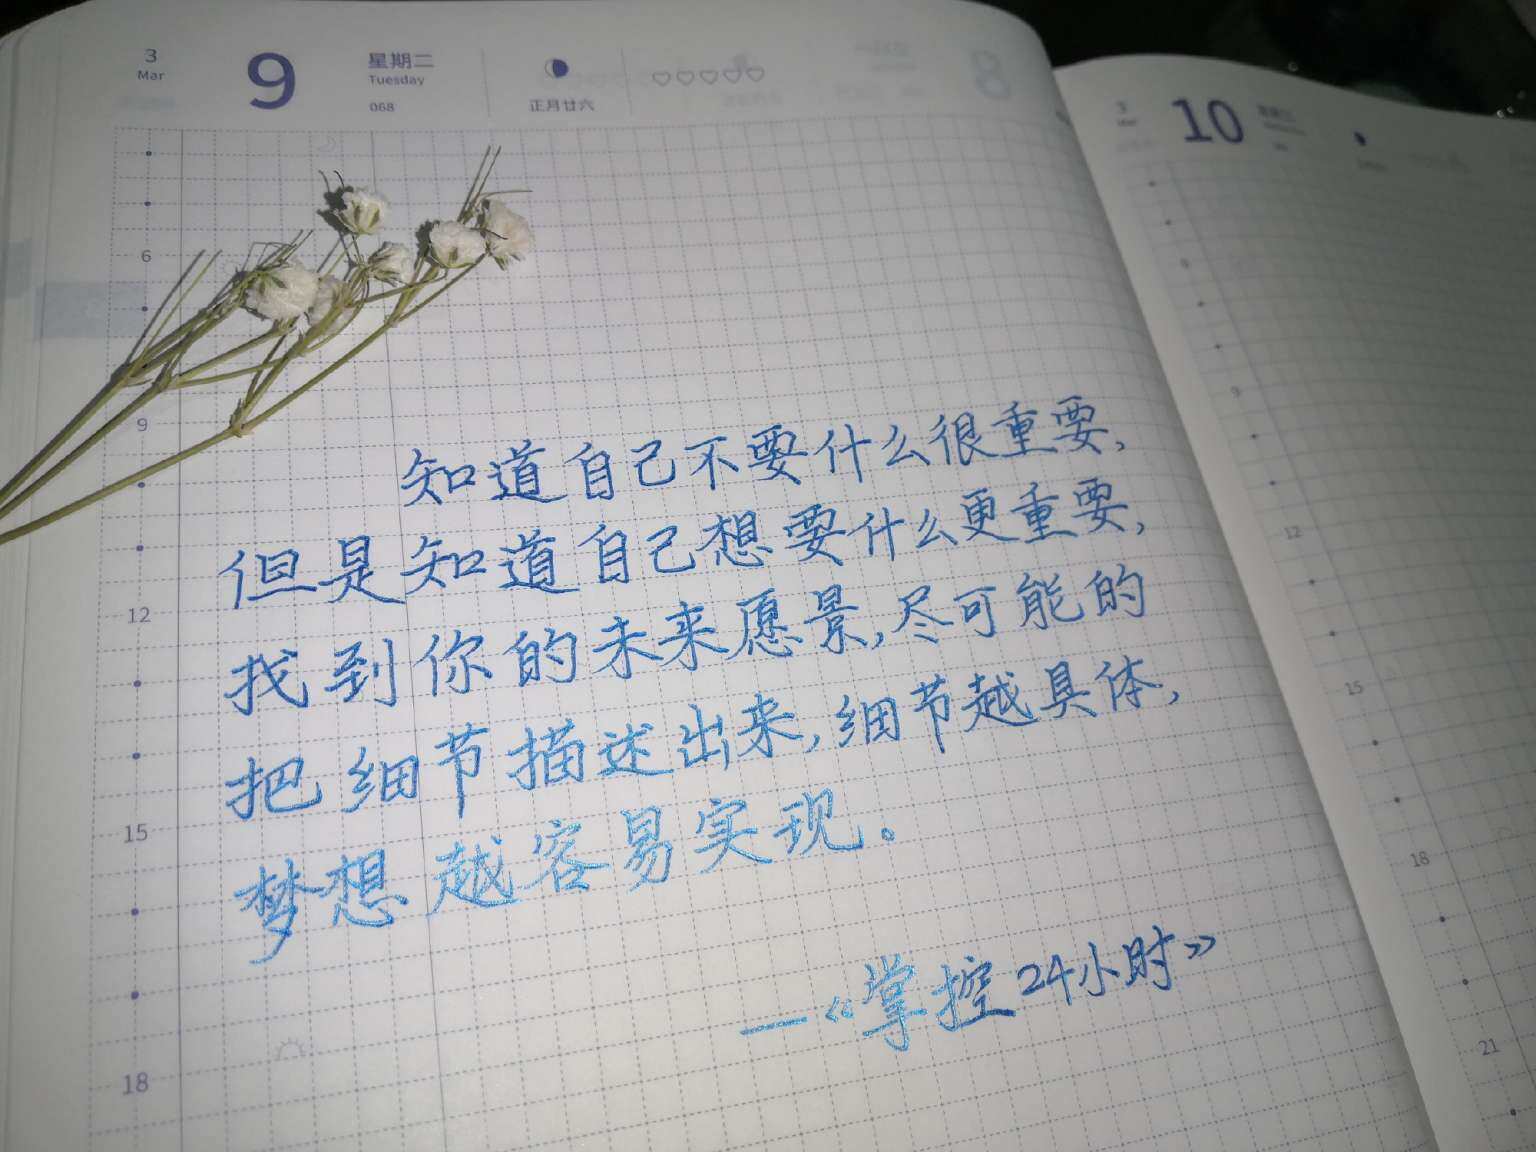 3
Mar
9
星期二
Tuesday
068
正月廿六
6
9
12
15
18
知道自己不要什么很重要,
但是知道自己想要什么更重要,
找到你的未来愿景,尽可能的
把细节描述出来,细节越具体,
梦想越容易实现。
—《掌控24小时》
3
10
9
12
15
18
21